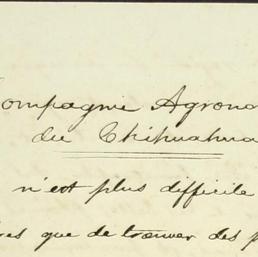 Compagnie Agrono
du Chihuahua
n'est plus difficile
que de trouver des p